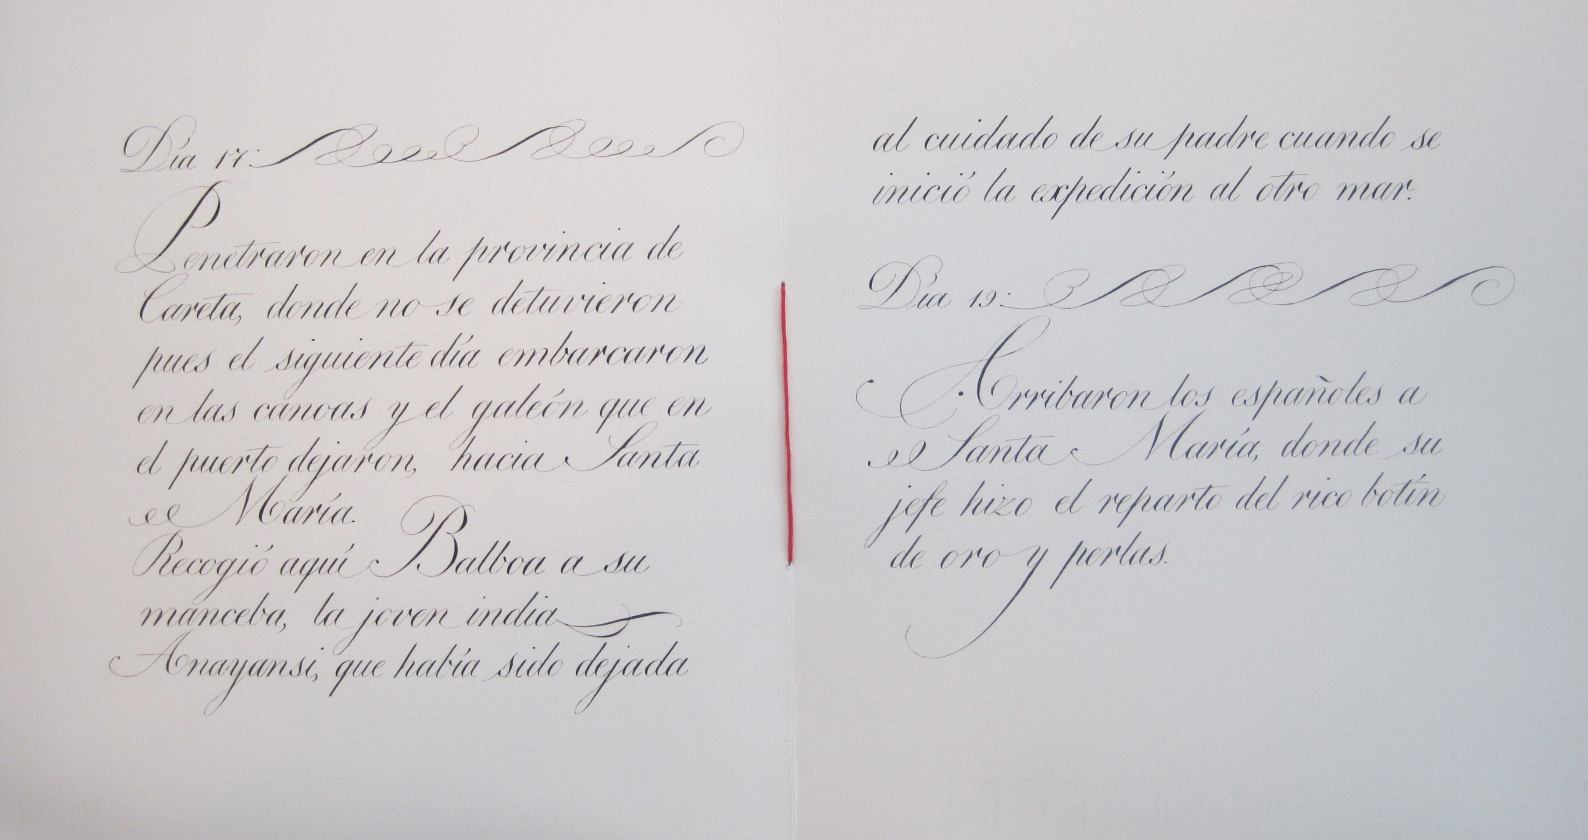 Día 17:
Penetraron en la provincia de
Careta, donde no se detuvieron
pues el siguiente día embarcaron
en las canoas y el galeón que en
el puerto dejaron, hacia Santa
María.
Recogió aquí Balboa a su
manceba, la joven india
Anayansi, que había sido dejada
al cuidado de su padre cuando se
inició la expedición al otro mar.
Día 19:
Arribaron los españoles a
Santa María, donde su
jefe hizo el reparto del rico botín
de oro y perlas.